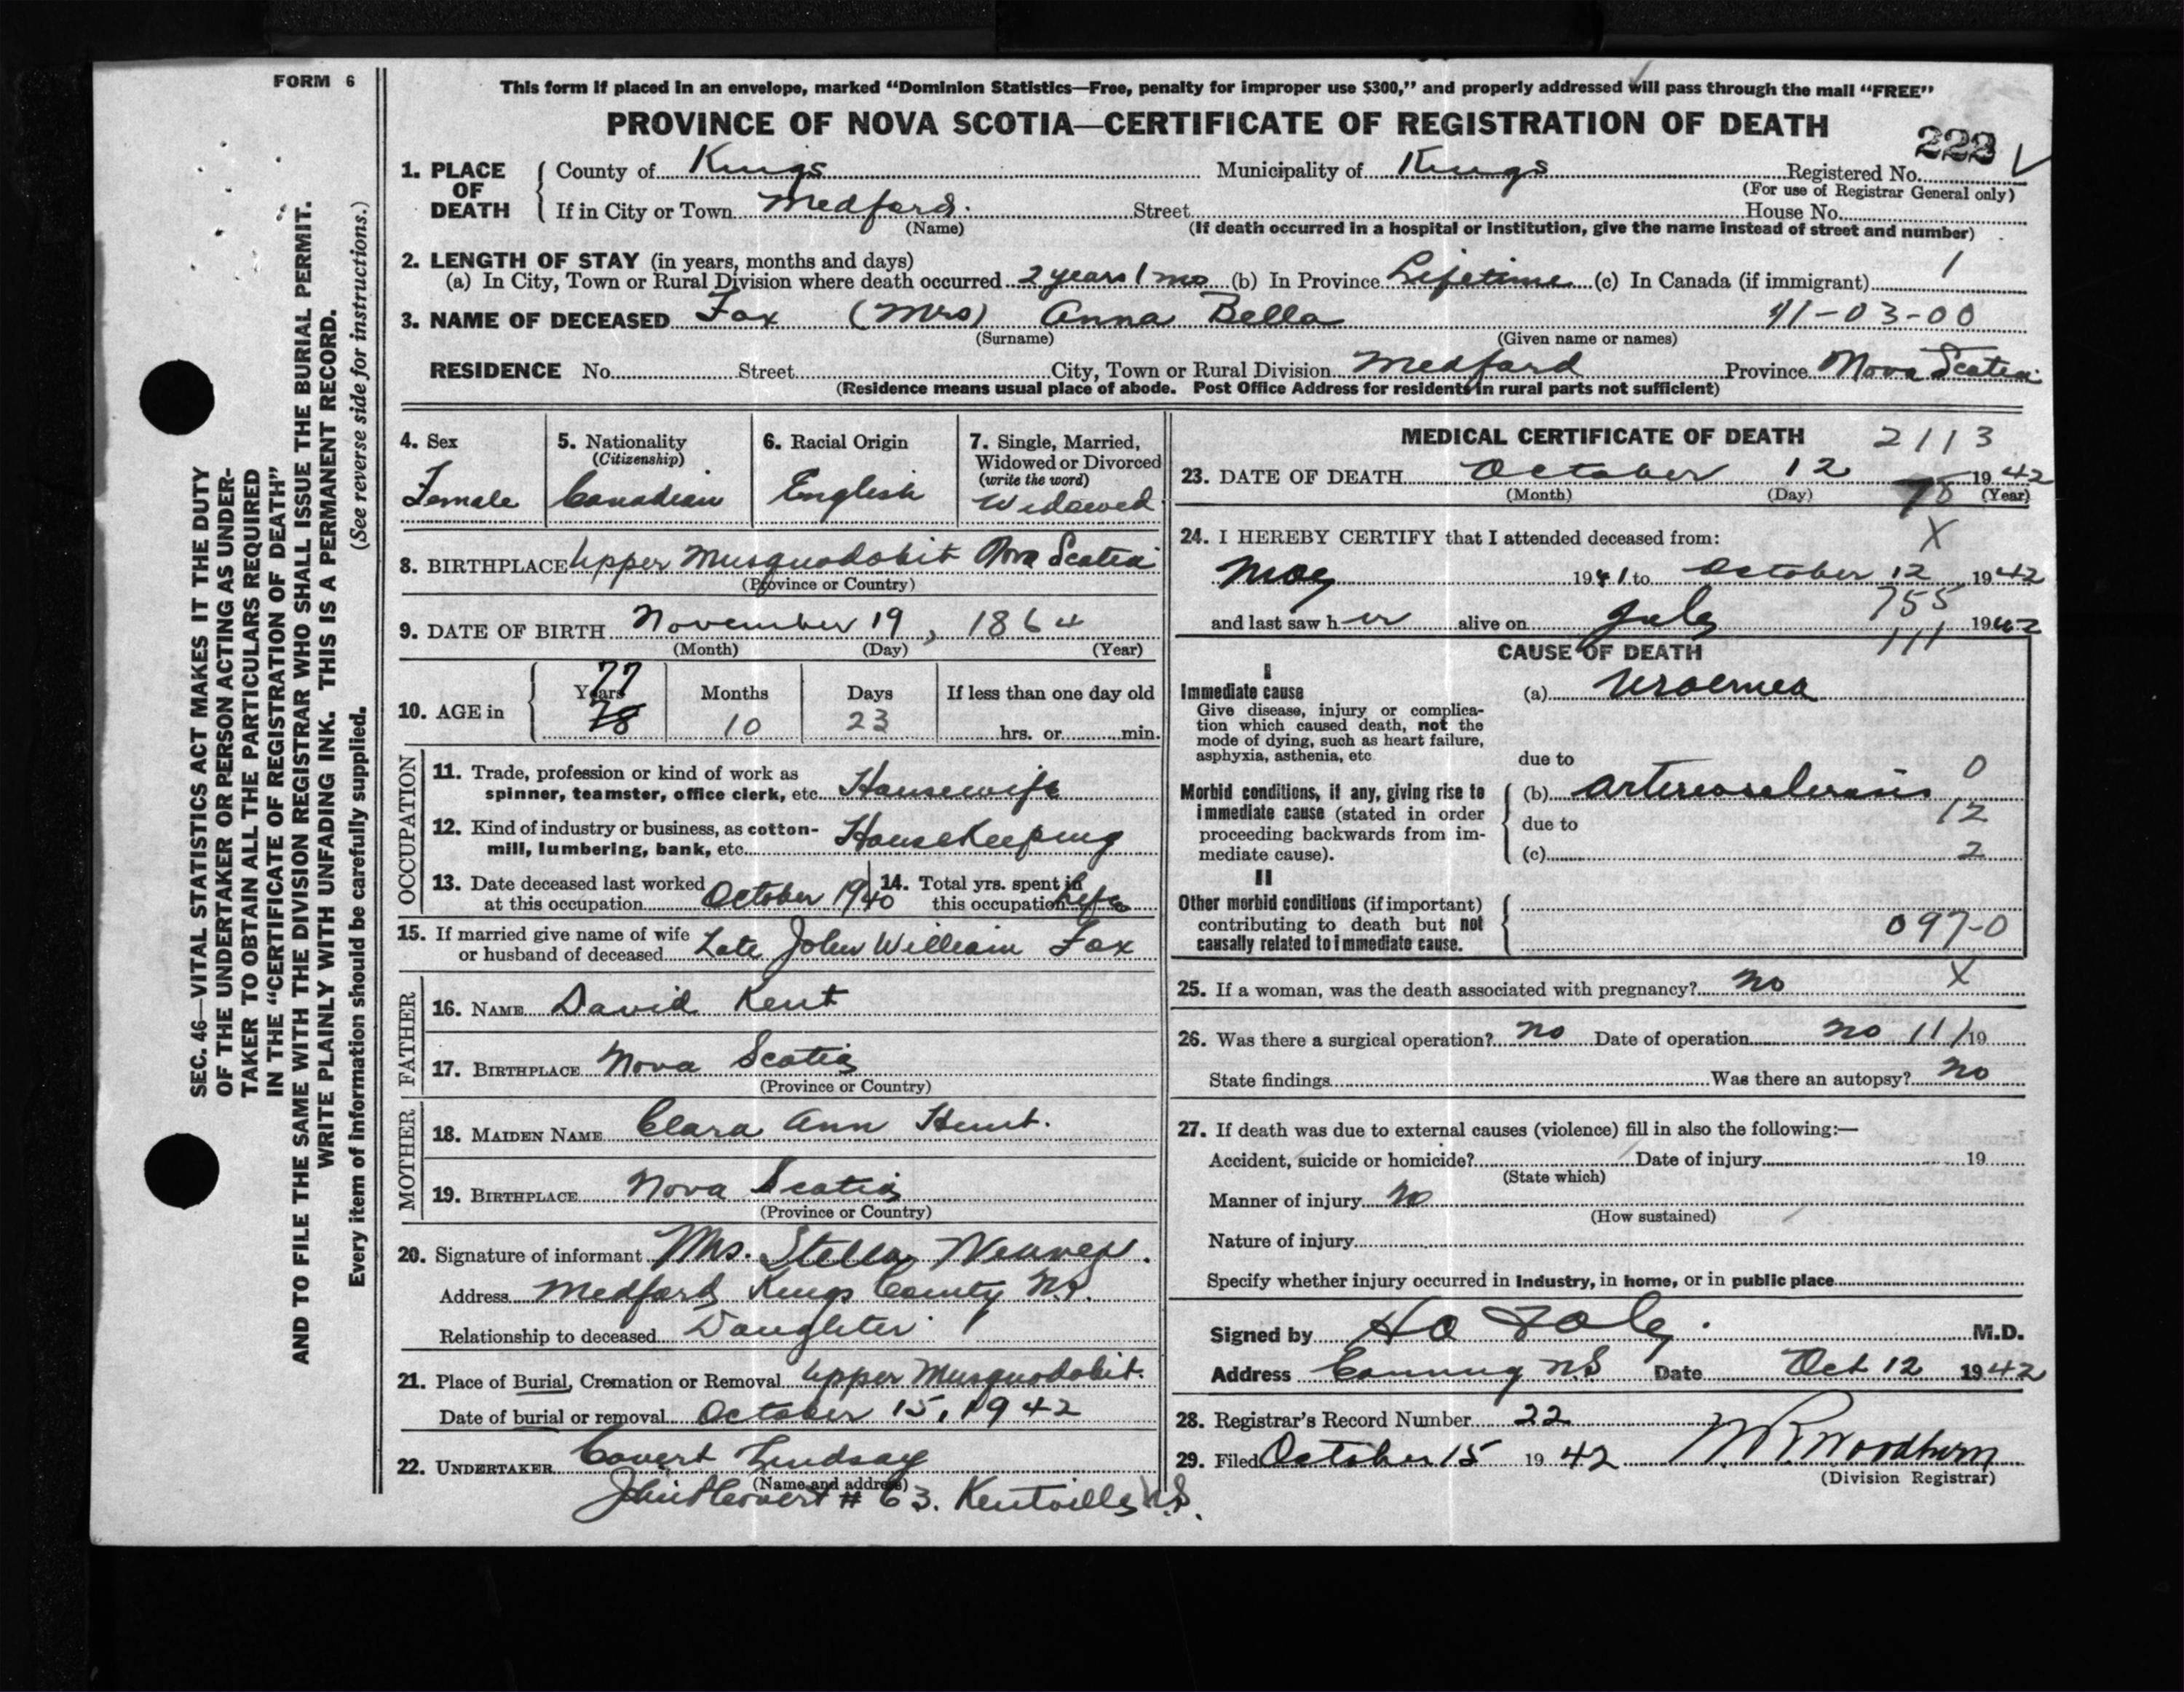 FORM 6
This form if placed in an envelope, marked "Dominion Statistics—Free, penalty for improper use $300," and properly addressed will pass through the mail "FREE"
PROVINCE OF NOVA SCOTIA—CERTIFICATE OF REGISTRATION OF DEATH
222
1. PLACE OF DEATH County of Kings Municipality of Kings Registered No.
(For use of Registrar General only)
If in City or Town Medford. Street House No.
(Name) (If death occurred in a hospital or institution, give the name instead of street and number)
2. LENGTH OF STAY (in years, months and days)
(a) In City, Town or Rural Division where death occurred 2 years 1 mo (b) In Province Lifetime (c) In Canada (if immigrant) 1
3. NAME OF DECEASED Fox (Mrs) Anna Bella 11-03-00
(Surname) (Given name or names)
RESIDENCE No. Street City, Town or Rural Division Medford Province Nova Scotia
(Residence means usual place of abode. Post Office Address for residents in rural parts not sufficient)
SEC. 46—VITAL STATISTICS ACT MAKES IT THE DUTY
OF THE UNDERTAKER OR PERSON ACTING AS UNDER-
TAKER TO OBTAIN ALL THE PARTICULARS REQUIRED
IN THE "CERTIFICATE OF REGISTRATION OF DEATH"
AND TO FILE THE SAME WITH THE DIVISION REGISTRAR WHO SHALL ISSUE THE BURIAL PERMIT.
WRITE PLAINLY WITH UNFADING INK. THIS IS A PERMANENT RECORD.
Every item of information should be carefully supplied. (See reverse side for instructions.)
4. Sex Female
5. Nationality (Citizenship) Canadian
6. Racial Origin English
7. Single, Married, Widowed or Divorced (write the word) Widowed
8. BIRTHPLACE Upper Musquodobit Nova Scotia
(Province or Country)
9. DATE OF BIRTH November 19, 1864
(Month) (Day) (Year)
10. AGE in Years 77 78 Months 10 Days 23 If less than one day old hrs. or min.
OCCUPATION
11. Trade, profession or kind of work as
spinner, teamster, office clerk, etc. Housewife
12. Kind of industry or business, as cotton-
mill, lumbering, bank, etc. HouseKeeping
13. Date deceased last worked
at this occupation October 1940
14. Total yrs. spent in
this occupation Life
15. If married give name of wife
or husband of deceased Late John William Fox
FATHER
16. NAME David Kent
17. BIRTHPLACE Nova Scotia
(Province or Country)
MOTHER
18. MAIDEN NAME Clara Ann Hunt.
19. BIRTHPLACE Nova Scotia
(Province or Country)
20. Signature of informant Mrs. Stella
Address Medford Kings County N.S.
Relationship to deceased Daughter
21. Place of Burial, Cremation or Removal Upper Musquodobit.
Date of burial or removal October 15, 1942
22. UNDERTAKER Covert Lindsay
(Name and address)
# 63. Kentville N.S.
MEDICAL CERTIFICATE OF DEATH 2113
23. DATE OF DEATH October 12 1942
(Month) (Day) (Year)
24. I HEREBY CERTIFY that I attended deceased from: X
1941 to October 12 1942
755
and last saw her alive on July 1942
111
CAUSE OF DEATH
I
Immediate cause (a) Uraemea
Give disease, injury or complica-
tion which caused death, not the
mode of dying, such as heart failure,
asphyxia, asthenia, etc
due to 0
Morbid conditions, if any, giving rise to
immediate cause (stated in order
proceeding backwards from im-
mediate cause).
(b) arteriosclerosis
12
due to
(c) 2
II
Other morbid conditions (if important)
contributing to death but not
causally related to immediate cause.
097-0
25. If a woman, was the death associated with pregnancy? no X
26. Was there a surgical operation? no Date of operation no 11/ 19
State findings Was there an autopsy? no
27. If death was due to external causes (violence) fill in also the following:—
Accident, suicide or homicide? Date of injury 19
(State which)
Manner of injury no
(How sustained)
Nature of injury
Specify whether injury occurred in industry, in home, or in public place
Signed by M.D.
Address Canning N.S Date Oct 12 1942
28. Registrar's Record Number 22
29. Filed October 15 1942
(Division Registrar)